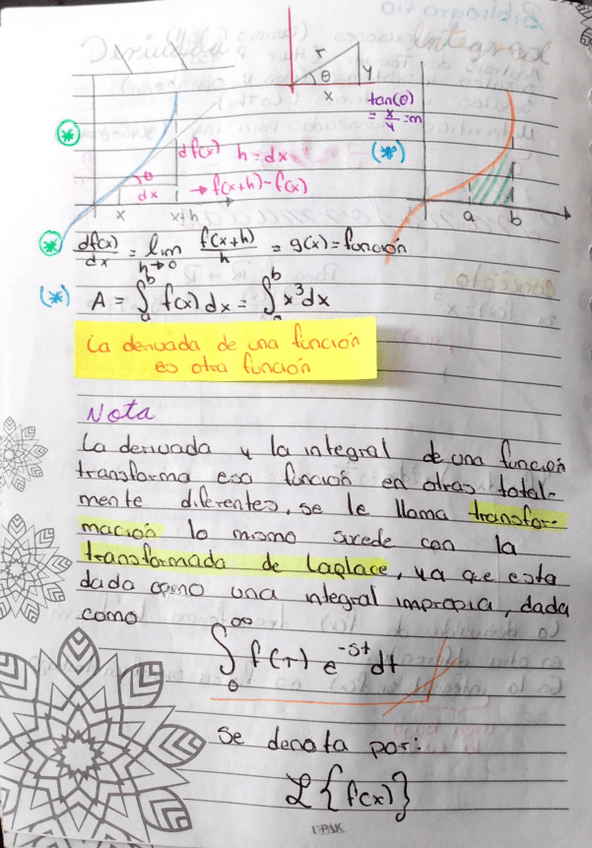 Derivada
Integral
r
θ
y
x
tan(θ)
= x/y = m
(*)
df(x) h = dx
θ
dx
→ f(x+h)-f(x)
x
x+h
a
b
df(x)/dx = lim h→0 f(x+h)/h = g(x) = función
(*) A = ∫ₐᵇ f(x) dx = ∫ₐᵇ x³ dx
La derivada de una función
es otra función
Nota
La derivada y la integral de una función
transforma esa función en otras total-
mente diferentes, se le llama transfor-
mación lo mismo sucede con la
transformada de Laplace, ya que esta
dada como una integral impropia, dada
como
∫₀^∞ f(t) e^-st dt
Se denota por:
ℒ{f(x)}